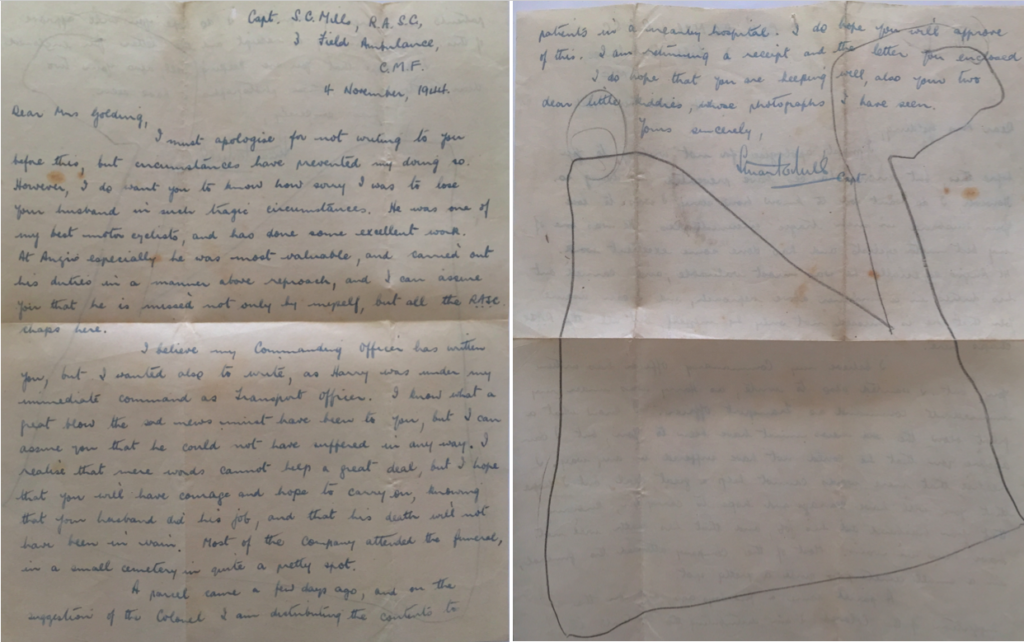 Capt. S.C. Mills, R.A.S.C,
3 Field Ambulance,
C.M.F.
4 November, 1944.
Dear Mrs Golding,
I must apologise for not writing to you
before this, but circumstances have prevented my doing so.
However, I do want you to know how sorry I was to lose
your husband in such tragic circumstances. He was one of
my best motor cyclists, and has done some excellent work.
At Anzio especially he was most valuable, and carried out
his duties in a manner above reproach, and I can assure
you that he is missed not only by myself, but all the RASC
chaps here.
I believe my Commanding Officer has written
you, but I wanted also to write, as Harry was under my
immediate command as Transport Officer. I know what a
great blow the sad news must have been to you, but I can
assure you that he could not have suffered in any way. I
realise that mere words cannot help a great deal, but I hope
that you will have courage and hope to carry on, knowing
that your husband did his job, and that his death will not
have been in vain. Most of the Company attended the funeral,
in a small cemetery in quite a pretty spot.
A parcel came a few days ago, and on the
suggestion of the Colonel I am distributing the contents to
patients in a nearby hospital. I do hope you will approve
of this. I am returning a receipt and the letter you enclosed
I do hope that you are keeping well, also your two
dear little kiddies, whose photographs I have seen.
Yours sincerely,
Stuart Mills
Capt